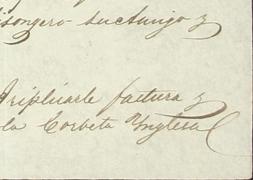 isongero suctuigo y
Triplicarle factura y
la Corbeta Ynglesa